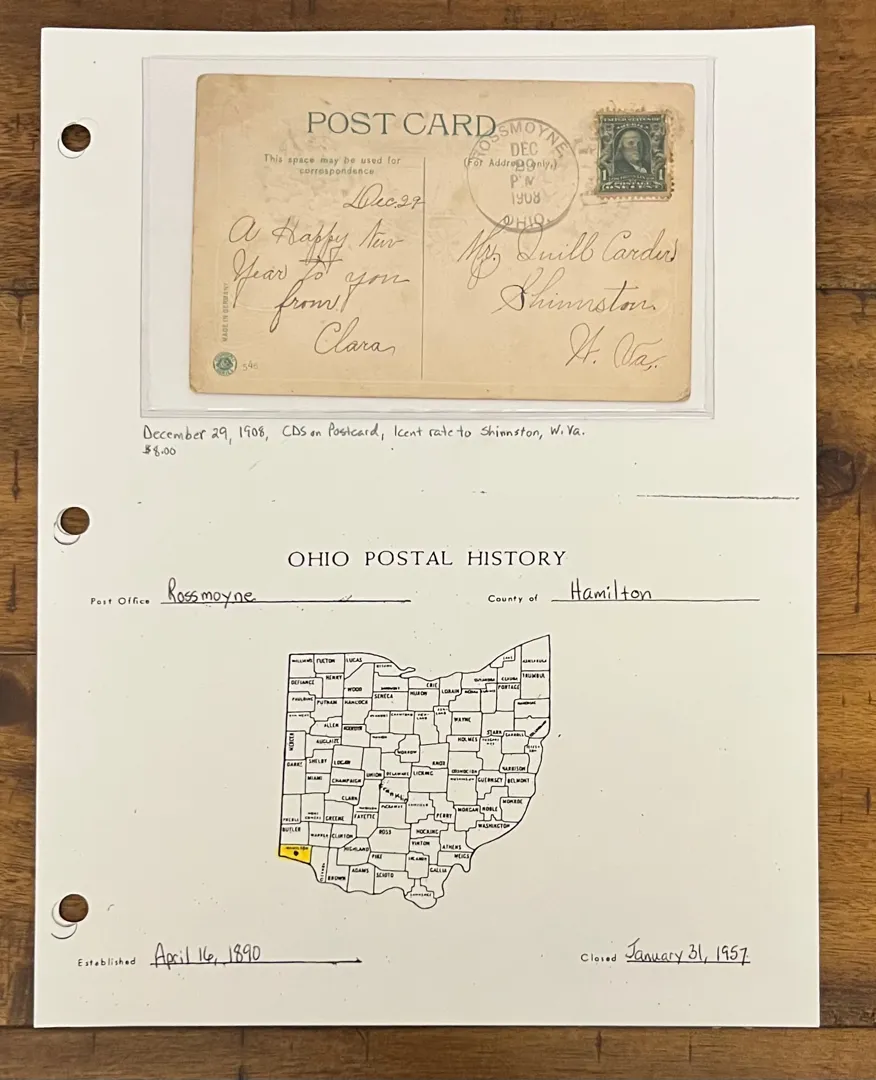 POST CARD
This space may be used for
correspondence
(For Address only.)
ROSSMOYNE
DEC
29
P M
1908
OHIO.
UNITED STATES OF
AMERICA
1 1
POSTAGE
ONE CENT
Dec. 29
A Happy New
Year to you
from
Clara
Mrs Quill Carder
Shinnston
W. Va.
MADE IN GERMANY
December 29, 1908, CDS on Postcard, 1cent rate to Shinnston, W. Va.
$8.00
OHIO POSTAL HISTORY
Post Office Rossmoyne County of Hamilton
WILLIAMS FULTON LUCAS
LAKE ASHTABULA
DEFIANCE HENRY WOOD
ERIE GEAUGA TRUMBUL
PAULDING PUTNAM HANCOCK SENECA HURON LORAIN PORTAGE
ALLEN WAYNE STARK CARROLL
MERCER AUGLAIZE HOLMES
DARKE SHELBY LOGAN MORROW KNOX HARRISON
MIAMI CHAMPAIGN UNION DELAWARE LICKING COSHOCTON GUERNSEY BELMONT
CLARK Franklin MONROE
PREBLE GREENE FAYETTE PICKAWAY PERRY MORGAN NOBLE
BUTLER WARREN CLINTON ROSS HOCKING WASHINGTON
VINTON ATHENS
HIGHLAND PIKE MEIGS
BROWN ADAMS SCIOTO GALLIA
Established April 16, 1890 Closed January 31, 1957